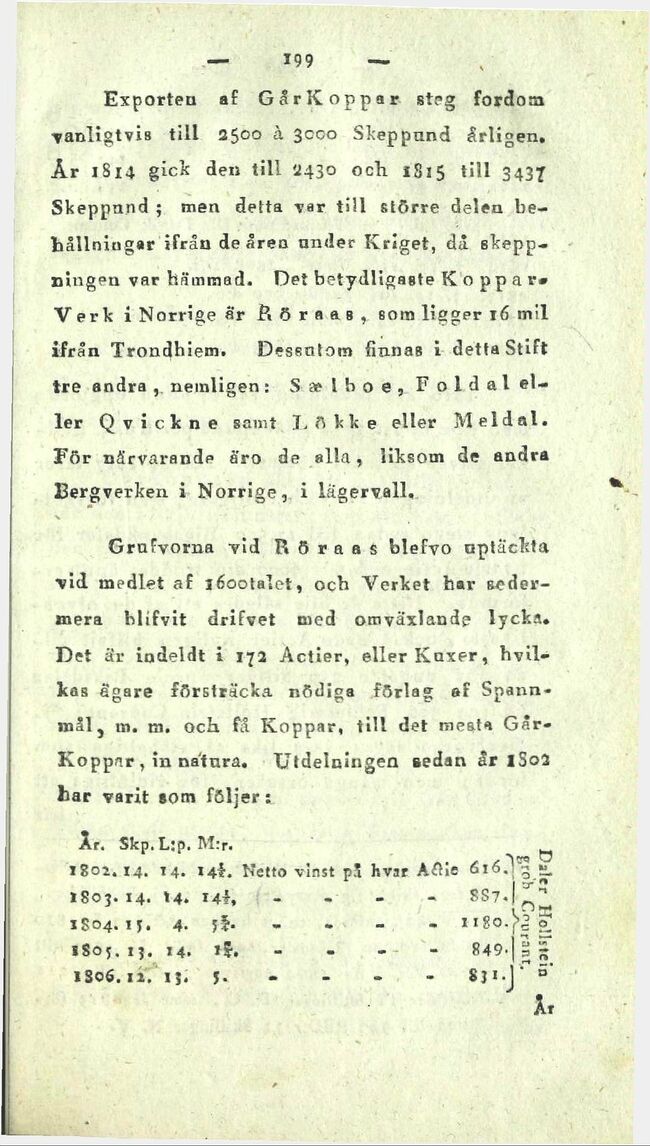 — 199 —
Exporten af GårKoppar steg fordom
vanligtvis till 2500 à 3000 Skeppund årligen.
År 1814 gick den till 2430 och 1815 till 3437
Skeppund; men detta var till större delen be-
hållningar ifrån de åren under Kriget, då skepp-
ningen var hämmad. Det betydligaste Koppar-
Verk i Norrige är Röraas, som ligger 16 mil
ifrån Trondhiem. Dessutom finnas i detta Stift
tre andra, nemligen: Sælboe, Foldal el-
ler Qvickne samt Lökke eller Meldal.
För närvarande äro de alla, liksom de andra
Bergverken i Norrige, i lägervall.
Grufvorna vid Röraas blefvo uptäckta
vid medlet af 1600talet, och Verket har seder-
mera blifvit drifvet med omväxlande lycka.
Det är indeldt i 172 Actier, eller Kuxer, hvil-
kas ägare försträcka nödiga förlag af Spann-
mål, m. m. och få Koppar, till det mesta Går-
Koppar, in natura. Utdelningen sedan år 1802
har varit som följer:
År. Skp. L:p. M:r.
1802. 14. 14. Netto vinst på hvar Actie 616.
1803. 14. 14. - - - - 887.
1804. 15. 4. - - - - 1180.
1805. 13. 14. - - - - 849.
1806. 12. 13. 5. - - - - 831.
Daler Hollstein
grob Courant.
År